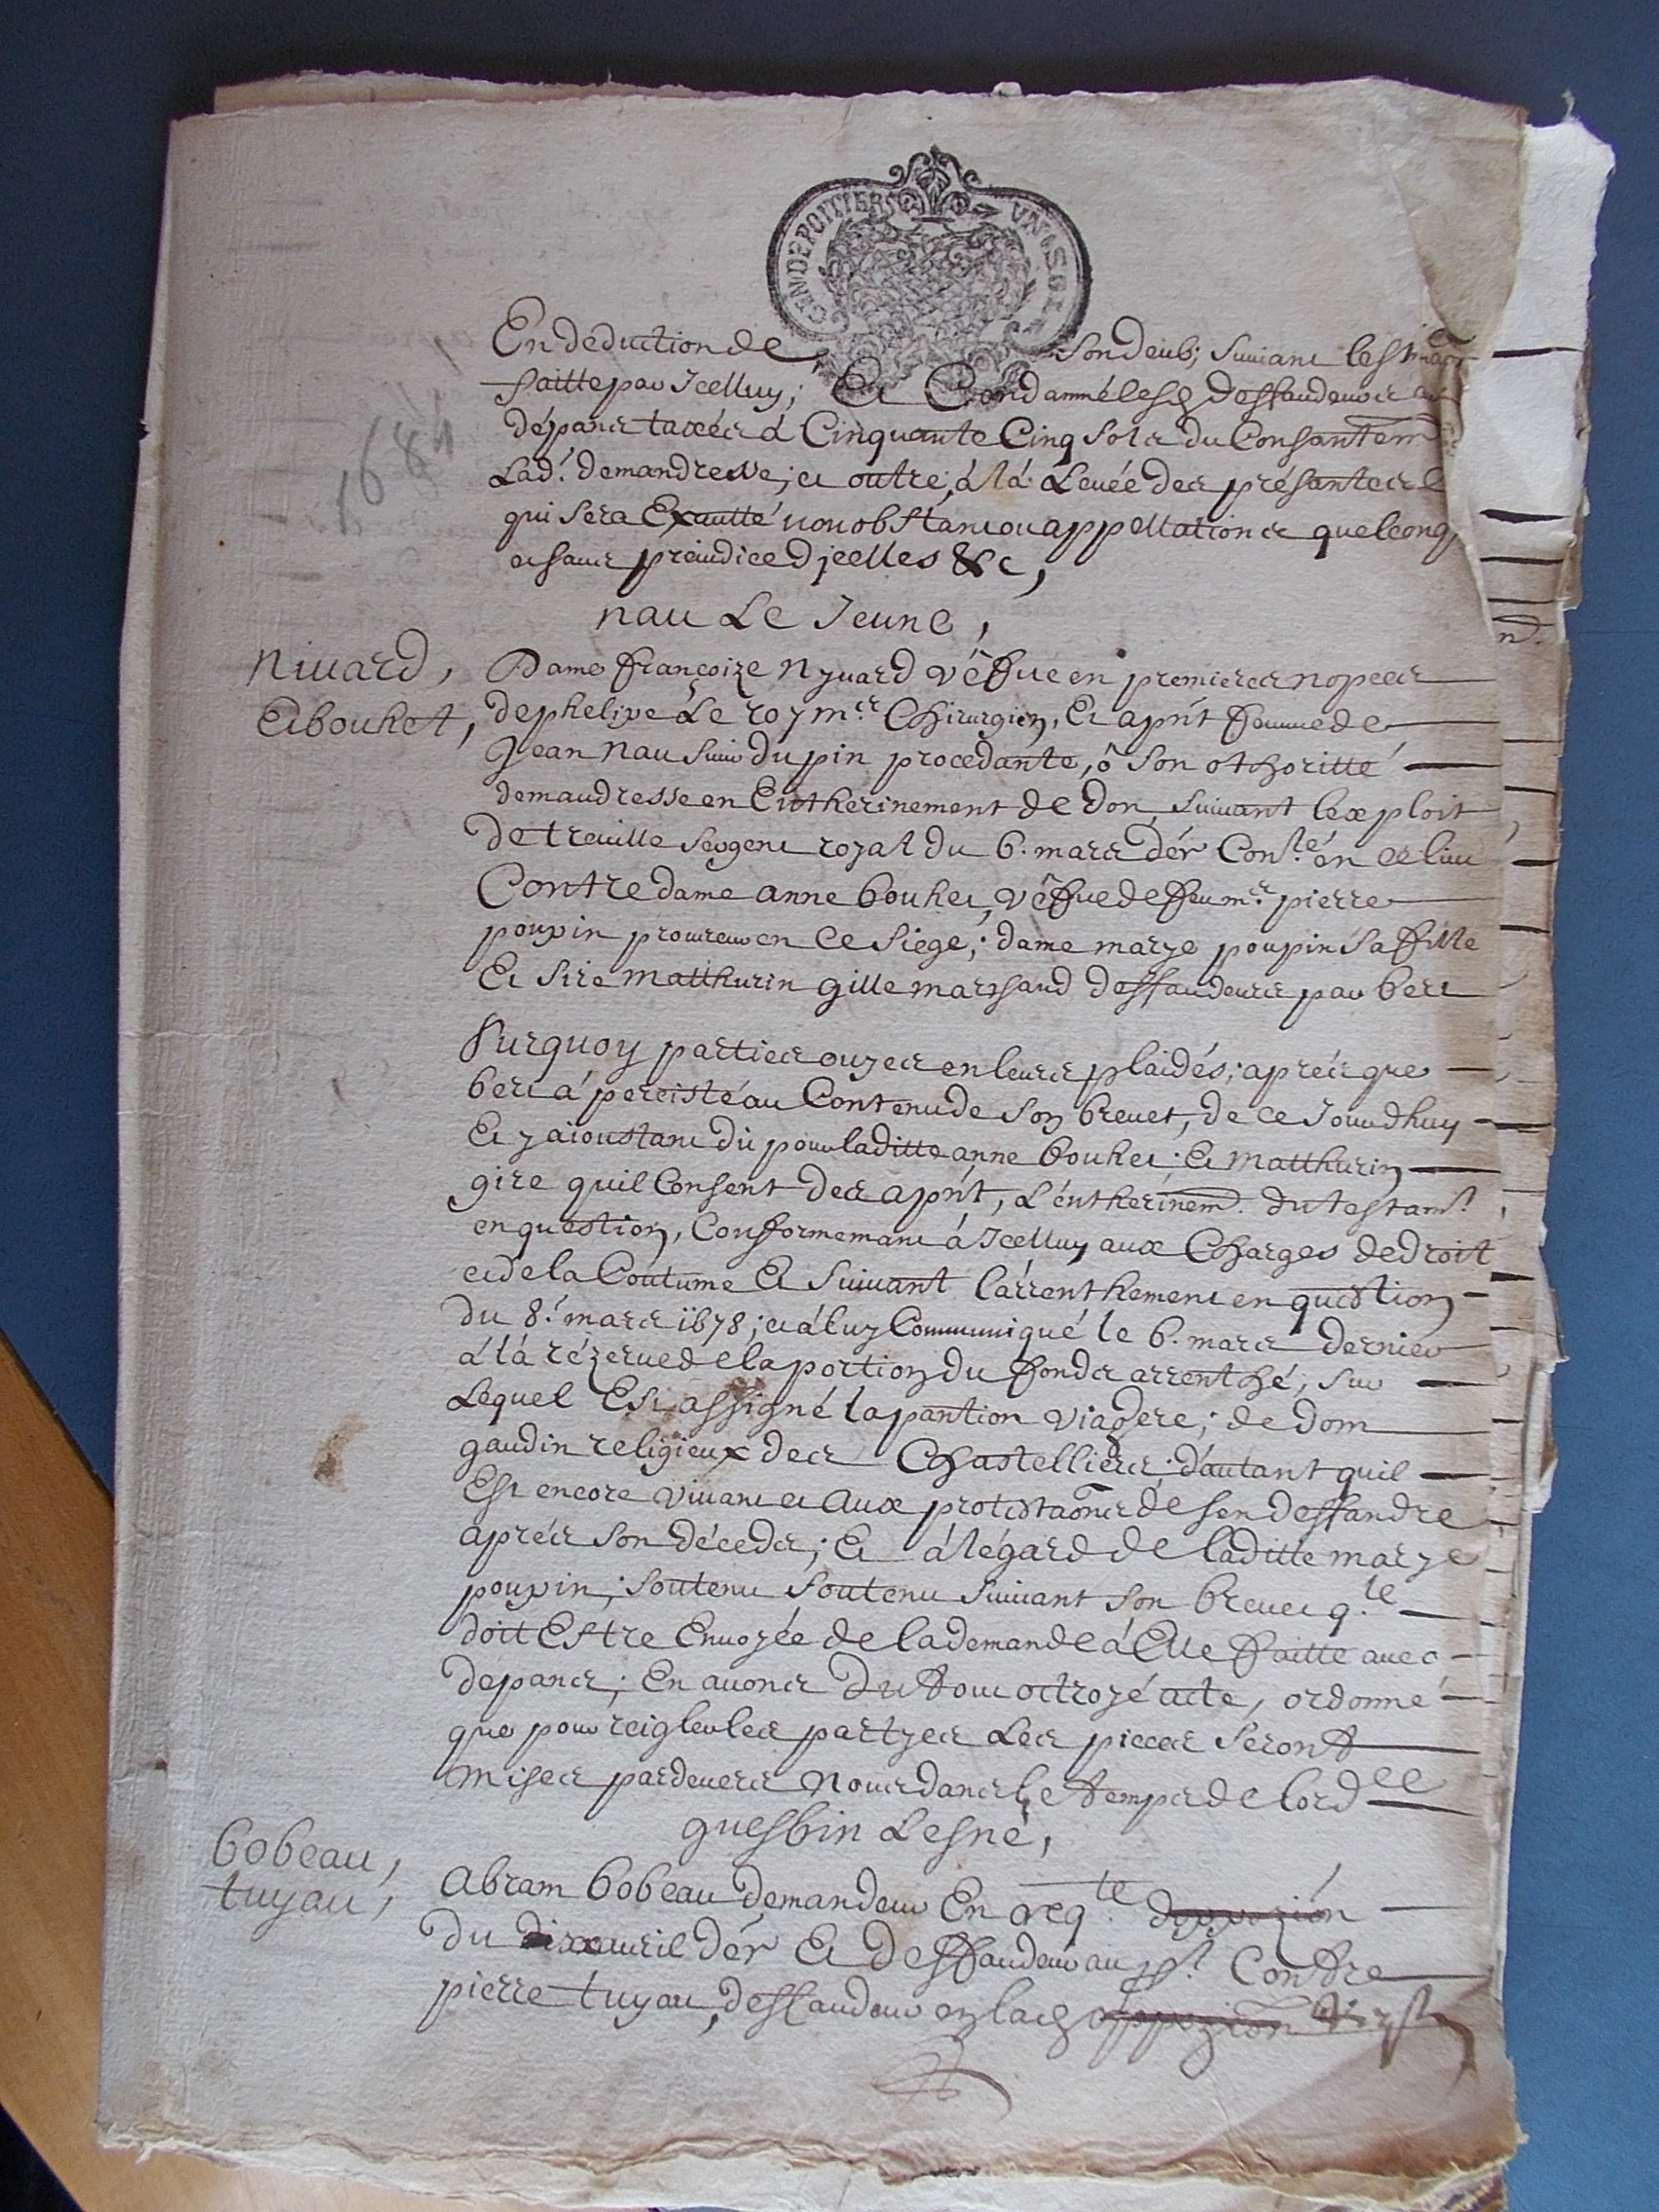 GEN DE POITIERS VN SOL
En deduction de son deub; suiuant lestima
faitte par Icelluy; Et Condamné lesd deffandeurs au
dépans taxés à Cinquante Cinq sols du Consantem
Lad. demandresse; et outre, à la Leuée des présantes
qui sera Exautté nonobstant ou appellations quelconq
et sans préiudice d'jcelles &c,
nau Le Jeune,
1684
niuard,
et bouhet,
Dame françoize nyuard vêfue en premieres nopces
de phelipe Le roy mr Chirurgien, Et aprit femme de
Jean nau sieur du pin procedante, ô son othoritté
demandresse en Entherinement de don, suiuant lexploit
de treuille sergent royal du 6. mars dér Conlé en ce lieu
Contre dame anne bouhet, vêfue de feu mr pierre
poupin procureur en ce siége; dame marye poupin sa fille
Et sire matthurin gille marchand deffandeurs par bert
Surquoy parties ouyes en leurs plaidés; aprés que
bert á percisté au Contenu de son breuet, de ce Jourdhuy
Et y aioustant dit pour laditte anne bouhet; Et matthurin
gire quil Consent des aprit, L'éntherinem. du testamt
en question, Conformemant á Icelluy aux Charges de droit
et de la Coutume Et suiuant l'arrenthement en question
du 8. mars 1678; et á luy Communiqué le 6. mars dernier
á lá rézerue de la portion du fonds arrenthé, sur
Lequel Est assigné la pantion viagere; de dom
gaudin religieux des Chastelliérs; d'autant quil
Est encore viuant et aux protestaons de sen deffandre
aprés son décéds; Et á légard de laditte marye
poupin; soutenu soutenu suiuant son breuet q.le
doit Estre Enuoyée de la demande á Elle faitte auec
dépans; En auons du tout octroyé acte, ordonné
que pour reigler les partyes Les pieces seront
mises pardeuers nous dans le temps de lordce
guesbin Lesné,
bobeau,
tuyau,
Abram bobeau demandeur En reqte dopposion
du dix auril dér Et deffandeur au pt Contre
pierre tuyau, deffandeur en lad oppozion